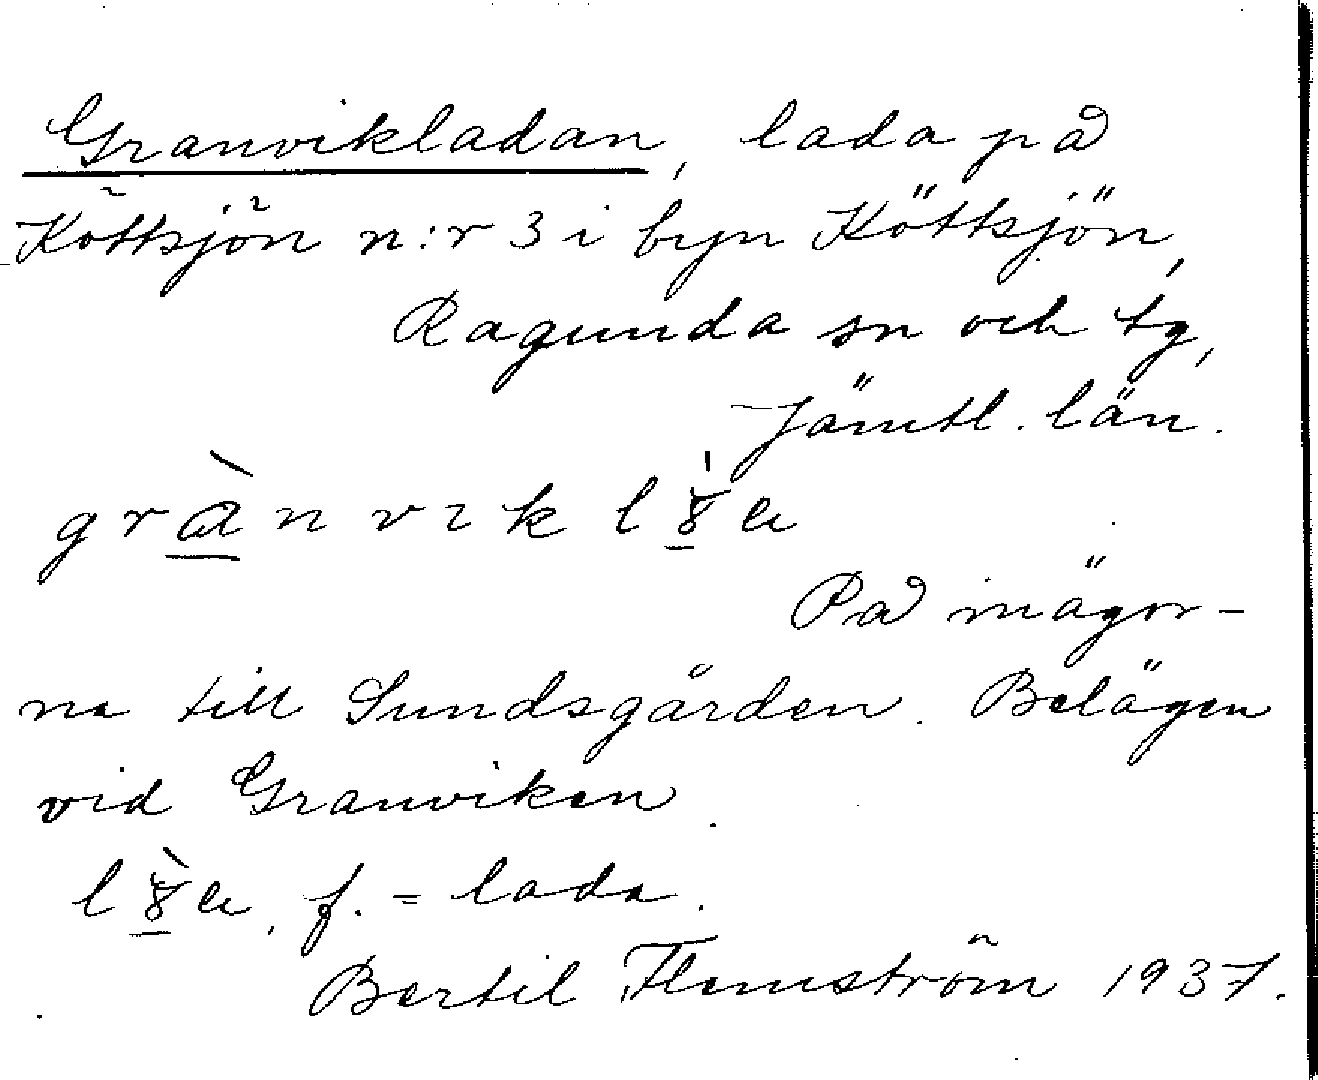 Granvikladan, lada på
Köttsjön n:r 3 i byn Köttsjön,
Ragunda sn och tg,
Jämtl. län.
På inägor-
na till Sundsgården. Belägen
vid Granviken.
f. = lada.
Bertil Flemström 1937.